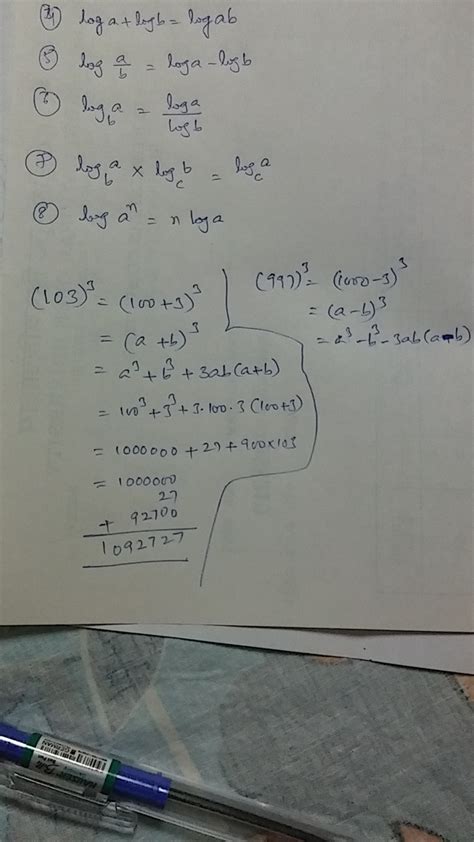 ④ log a + log b = log ab
⑤ log a/b = log a - log b
⑥ log_b a = log a / log b
⑦ log_b a × log_c b = log_c a
⑧ log aⁿ = n log a
(103)³ = (100+3)³
= (a+b)³
= a³+b³+3ab(a+b)
= 100³+3³+3·100·3(100+3)
= 1000000 + 27 + 900×103
= 1000000
27
+ 92700
1092727
(997)³ = (1000-3)³
= (a-b)³
= a³-b³-3ab(a-b)